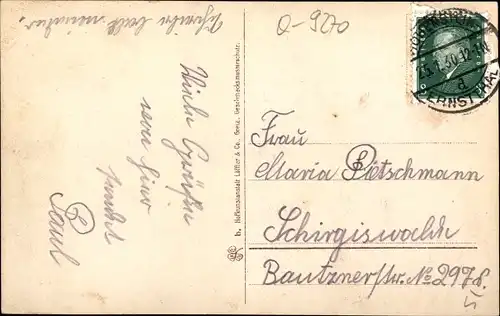 O-9270
Schreibe bald wieder.
Viele Grüße
von hier
sendet
Paul
b. Hofkunstanstalt Löffler & Co. Greiz. Geschmacksmusterschutz.
HOHENSTEIN-
23.1.30.12-1N
a
ERNSTTHAL
Frau
Maria Pötschmann
Schirgiswalde
Bautznerstr. No 297 f.